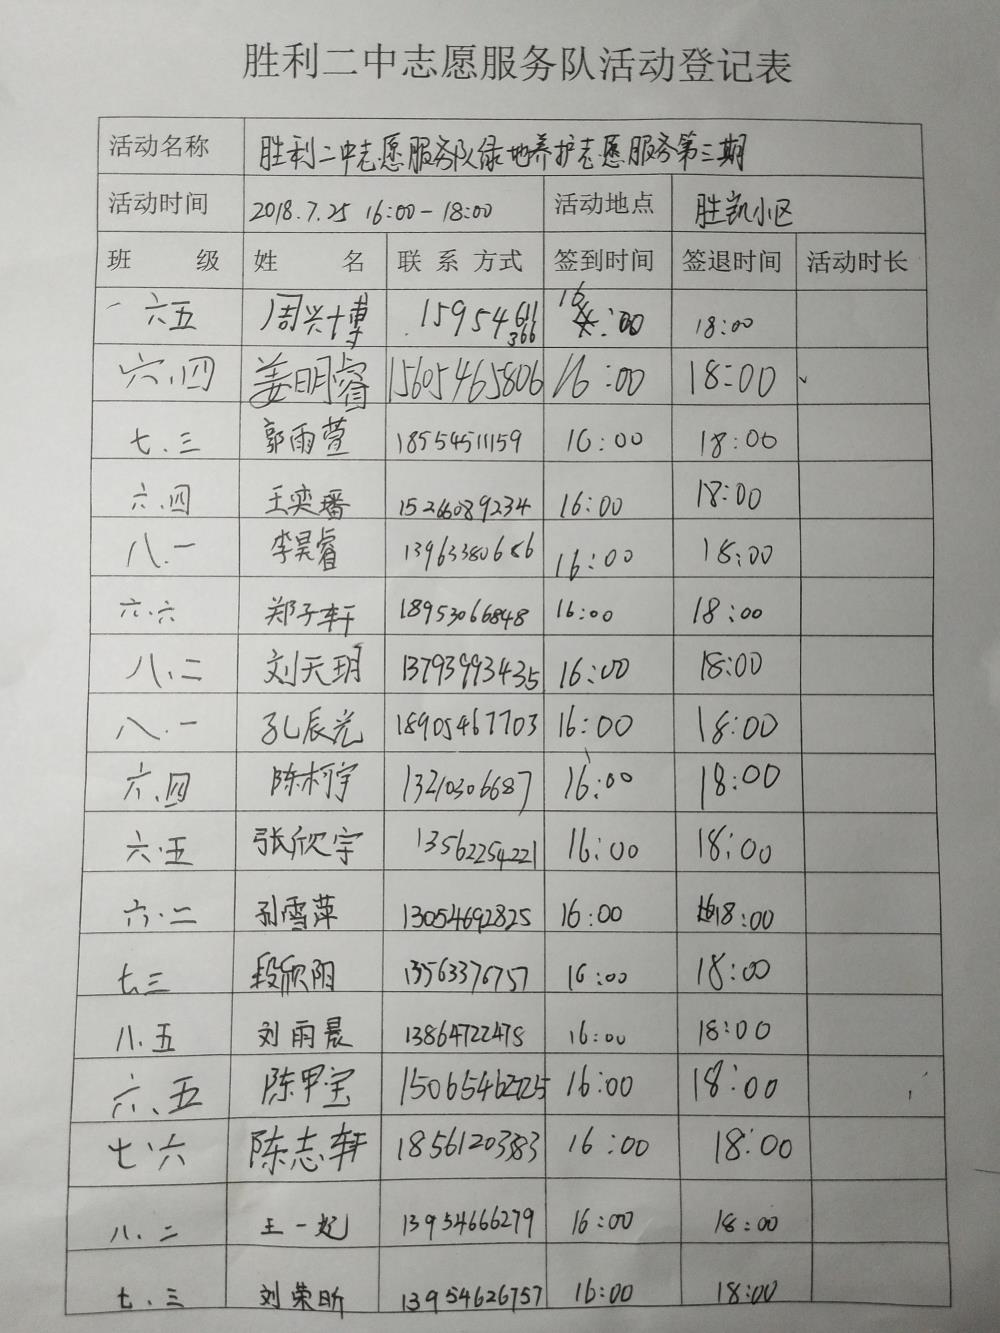 胜利二中志愿服务队活动登记表
活动名称 胜利二中志愿服务队绿地养护志愿服务第三期
活动时间 2018.7.25 16:00-18:00 活动地点 胜凯小区
班 级 姓 名 联系方式 签到时间 签退时间 活动时长
六五 周兴博 15954611366 16:00 18:00
六.四 姜明睿 15605465806 16:00 18:00
七.三 郭雨萱 18554511159 16:00 18:00
六.四 王奕璠 15266089234 16:00 18:00
八.一 李昊睿 13963380686 16:00 18:00
六.六 郑子轩 18953066848 16:00 18:00
八.二 刘天玥 13793993435 16:00 18:00
八.一 孔辰光 18905467703 16:00 18:00
六.四 陈柯宇 13210306687 16:00 18:00
六.五 张欣宇 13562254221 16:00 18:00
六.二 孙雪萍 13054692825 16:00 18:00
七.三 段欣阳 13563376757 16:00 18:00
八.五 刘雨晨 13864722478 16:00 18:00
六、五 陈甲宝 16:00 18:00
七.六 陈志轩 18561203383 16:00 18:00
八.二 王一 13954666279 16:00 18:00
七.三 刘荣昕 13954626757 16:00 18:00